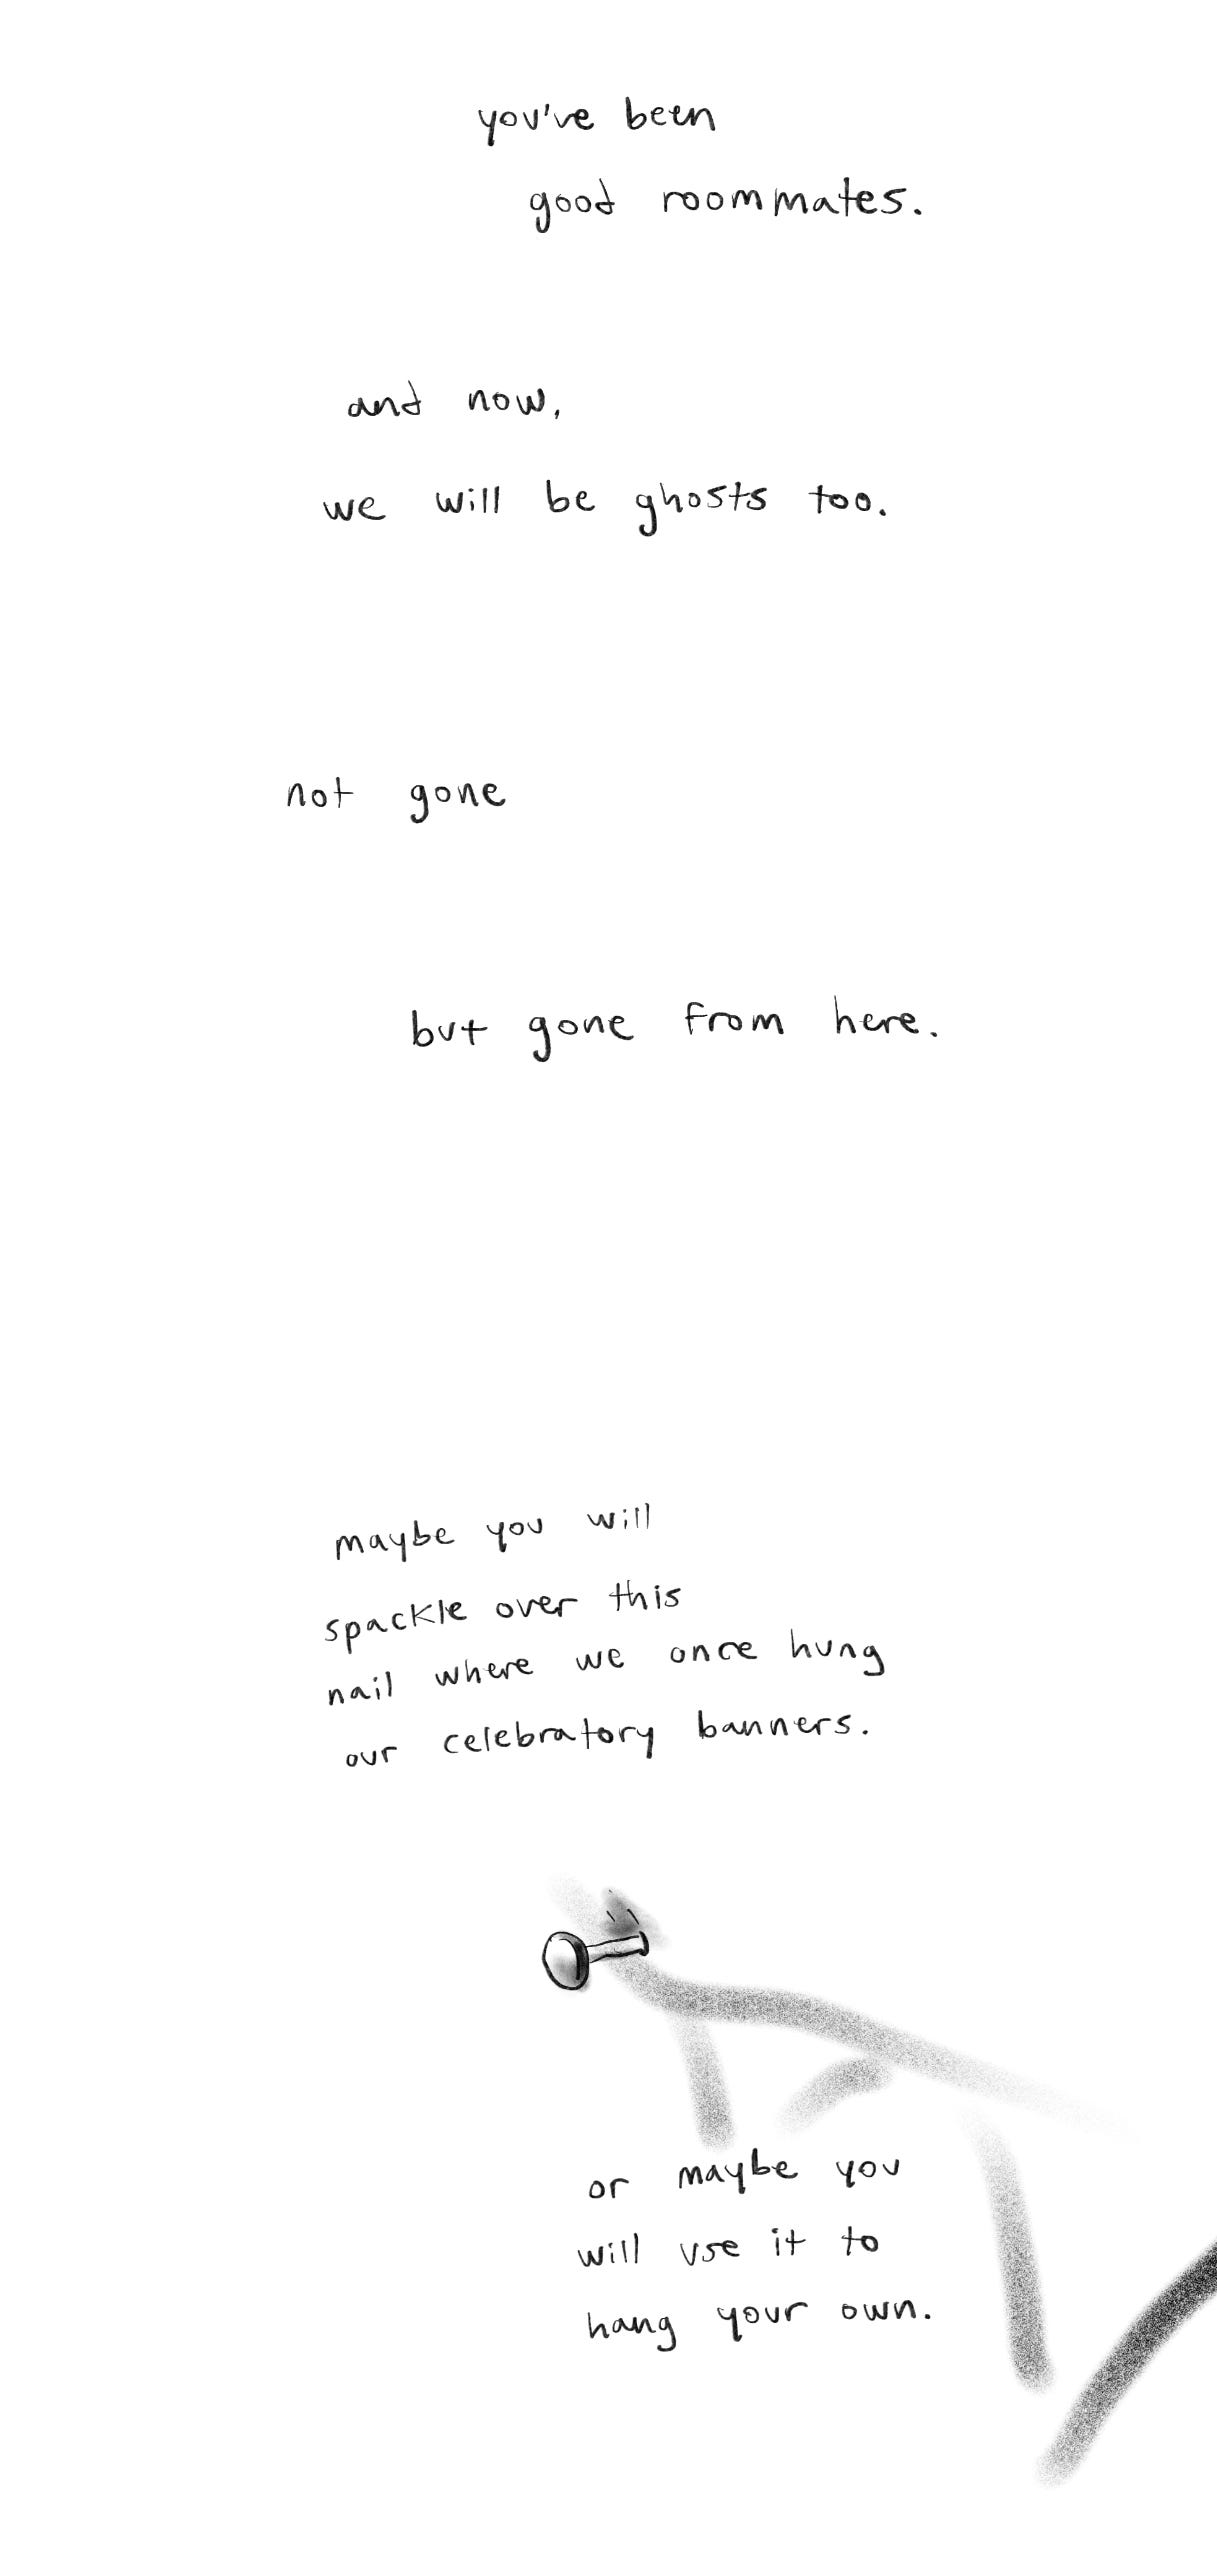 you've been
good roommates.
and now,
we will be ghosts too.
not gone
but gone from here.
maybe you will
spackle over this
nail where we once hung
our celebratory banners.
or maybe you
will use it to
hang your own.